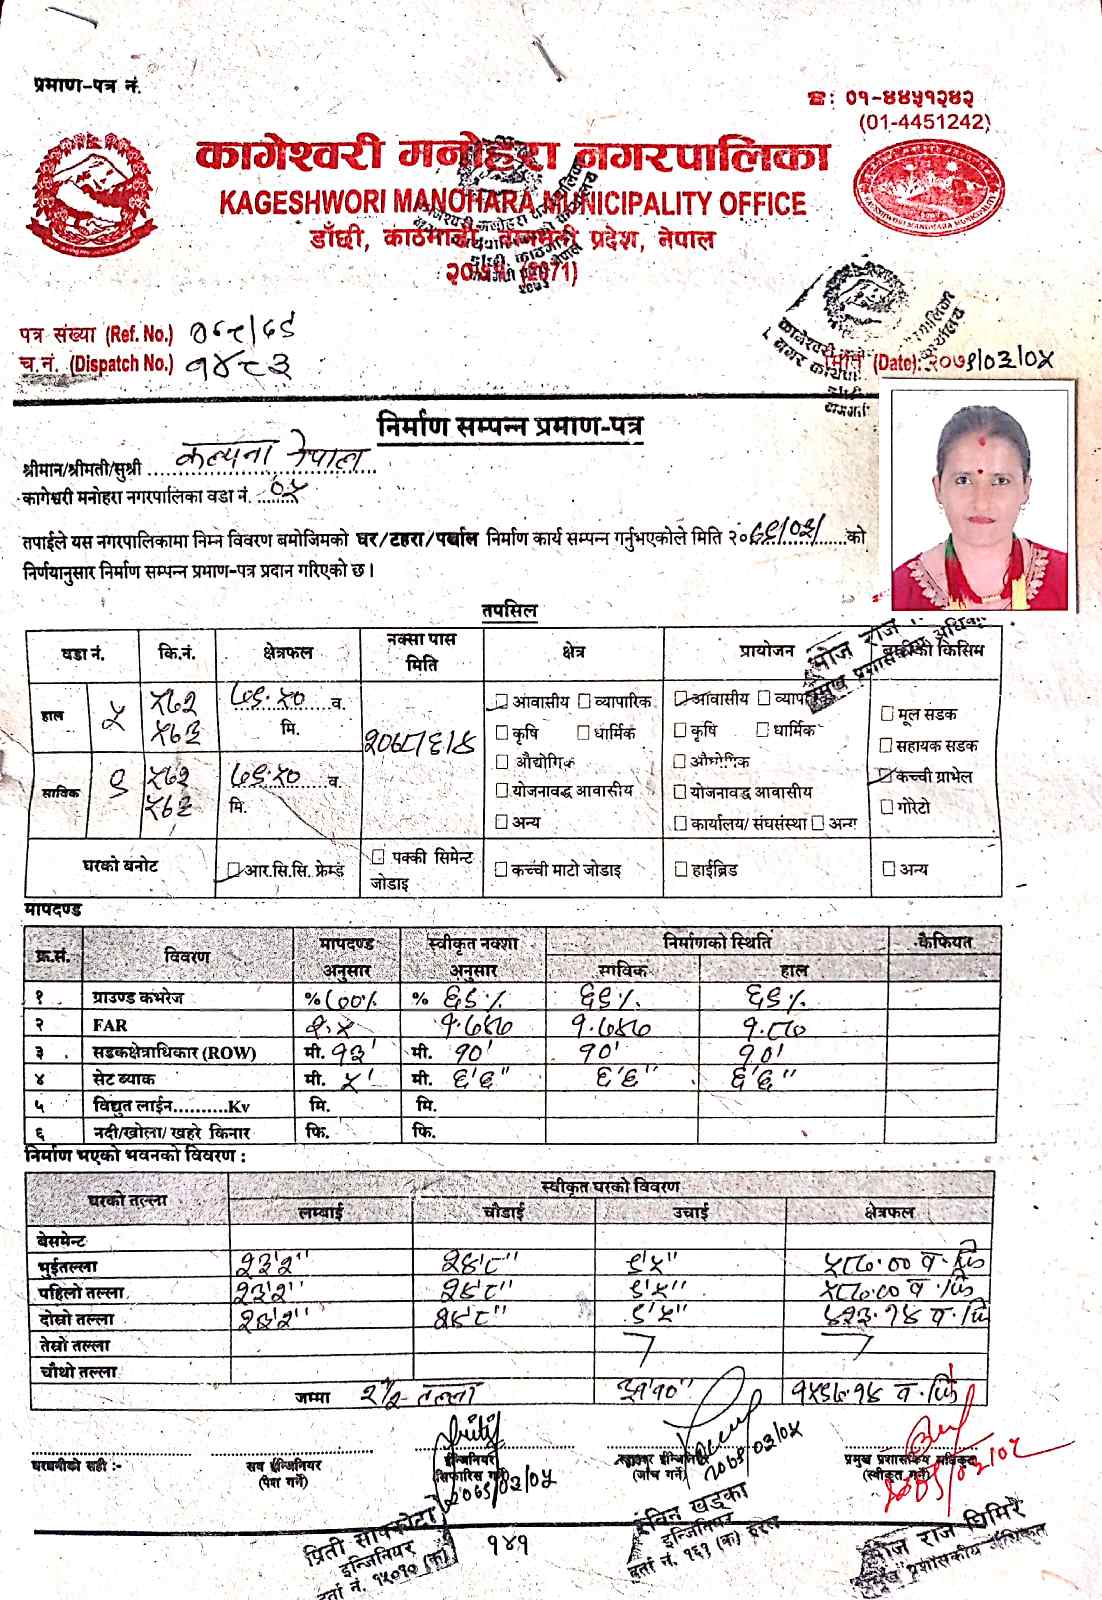 प्रमाण-पत्र नं.
☎: ०१-४४५१२४२
(01-4451242)
कागेश्वरी मनोहरा नगरपालिका
KAGESHWORI MANOHARA MUNICIPALITY OFFICE
डाँछी, काठमाडौं, बागमती प्रदेश, नेपाल
(2071)
पत्र संख्या (Ref. No.) ०७८/७९
च.नं. (Dispatch No.) १४८३
मिति (Date): २०७९/०३/०५
निर्माण सम्पन्न प्रमाण-पत्र
श्रीमान/श्रीमती/सुश्री कल्पना नेपाल
कागेश्वरी मनोहरा नगरपालिका वडा नं. ०५
तपाईले यस नगरपालिकामा निम्न विवरण बमोजिमको घर/टहरा/पर्खाल निर्माण कार्य सम्पन्न गर्नुभएकोले मिति २०७९/०३/ को
निर्णयानुसार निर्माण सम्पन्न प्रमाण-पत्र प्रदान गरिएको छ।
तपसिल
वडा नं. कि.नं. क्षेत्रफल नक्सा पास मिति क्षेत्र प्रायोजन किसिम
हाल ५ ५७२ ५७३ ७९.५० व. मि. २०७८/६/५
साविक ९ ५७२ ५७३ ७९.५० व. मि.
आवासीय व्यापारिक आवासीय मूल सडक
कृषि धार्मिक कृषि धार्मिक सहायक सडक
औद्योगिक औद्योगिक कच्ची ग्राभेल
योजनावद्ध आवासीय योजनावद्ध आवासीय गोरेटो
अन्य कार्यालय/ संघसंस्था अन्य
घरको बनोट आर.सि.सि. फ्रेम्ड पक्की सिमेन्ट जोडाइ कच्ची माटो जोडाइ हाईब्रिड अन्य
मापदण्ड
क्र.सं. विवरण मापदण्ड अनुसार स्वीकृत नक्शा अनुसार निर्माणको स्थिति कैफियत
साविक हाल
१ ग्राउण्ड कभरेज % ७०% % ६९% ६९% ६९%
२ FAR २.५ १.७४७ १.७४७ १.८७
३ सडकक्षेत्राधिकार (ROW) मी. १३' मी. १०' १०' १०'
४ सेट ब्याक मी. ५' मी. ६'६" ६'६" ६'६"
५ विद्युत लाईन..........Kv मि. मि.
६ नदी/खोला/ खहरे किनार फि. फि.
निर्माण भएको भवनको विवरण :
घरको तल्ला स्वीकृत घरको विवरण
लम्बाई चौडाई उचाई क्षेत्रफल
बेसमेन्ट
भुईतल्ला २३'२" २४'८" ९'५" ५८७.०० व.फि
पहिलो तल्ला २३'२" २४'८" ९'५" ५८७.०० व.फि
दोस्रो तल्ला २३'२" २४'८" ९'५" ४२३.१४ व.फि
तेस्रो तल्ला
चौथो तल्ला
जम्मा २ १/२ तल्ला ३१'१०" १५९७.१४ व.फि
घरधनीको सही :-
सव ईन्जिनियर
(पेश गर्ने)
ईन्जिनियर
(सिफारिस गर्ने)
२०७९/०३/०५
ईन्जिनियर
(जाँच गर्ने)
२०७९/०३/०५
प्रमुख प्रशासकीय अधिकृत
(स्वीकृत गर्ने)
प्रिती सापकोटा
इन्जिनियर
दर्ता नं. १५०१० (क)
१४१
रविन खड्का
इन्जिनियर
भोज राज घिमिरे
प्रमुख प्रशासकीय अधिकृत